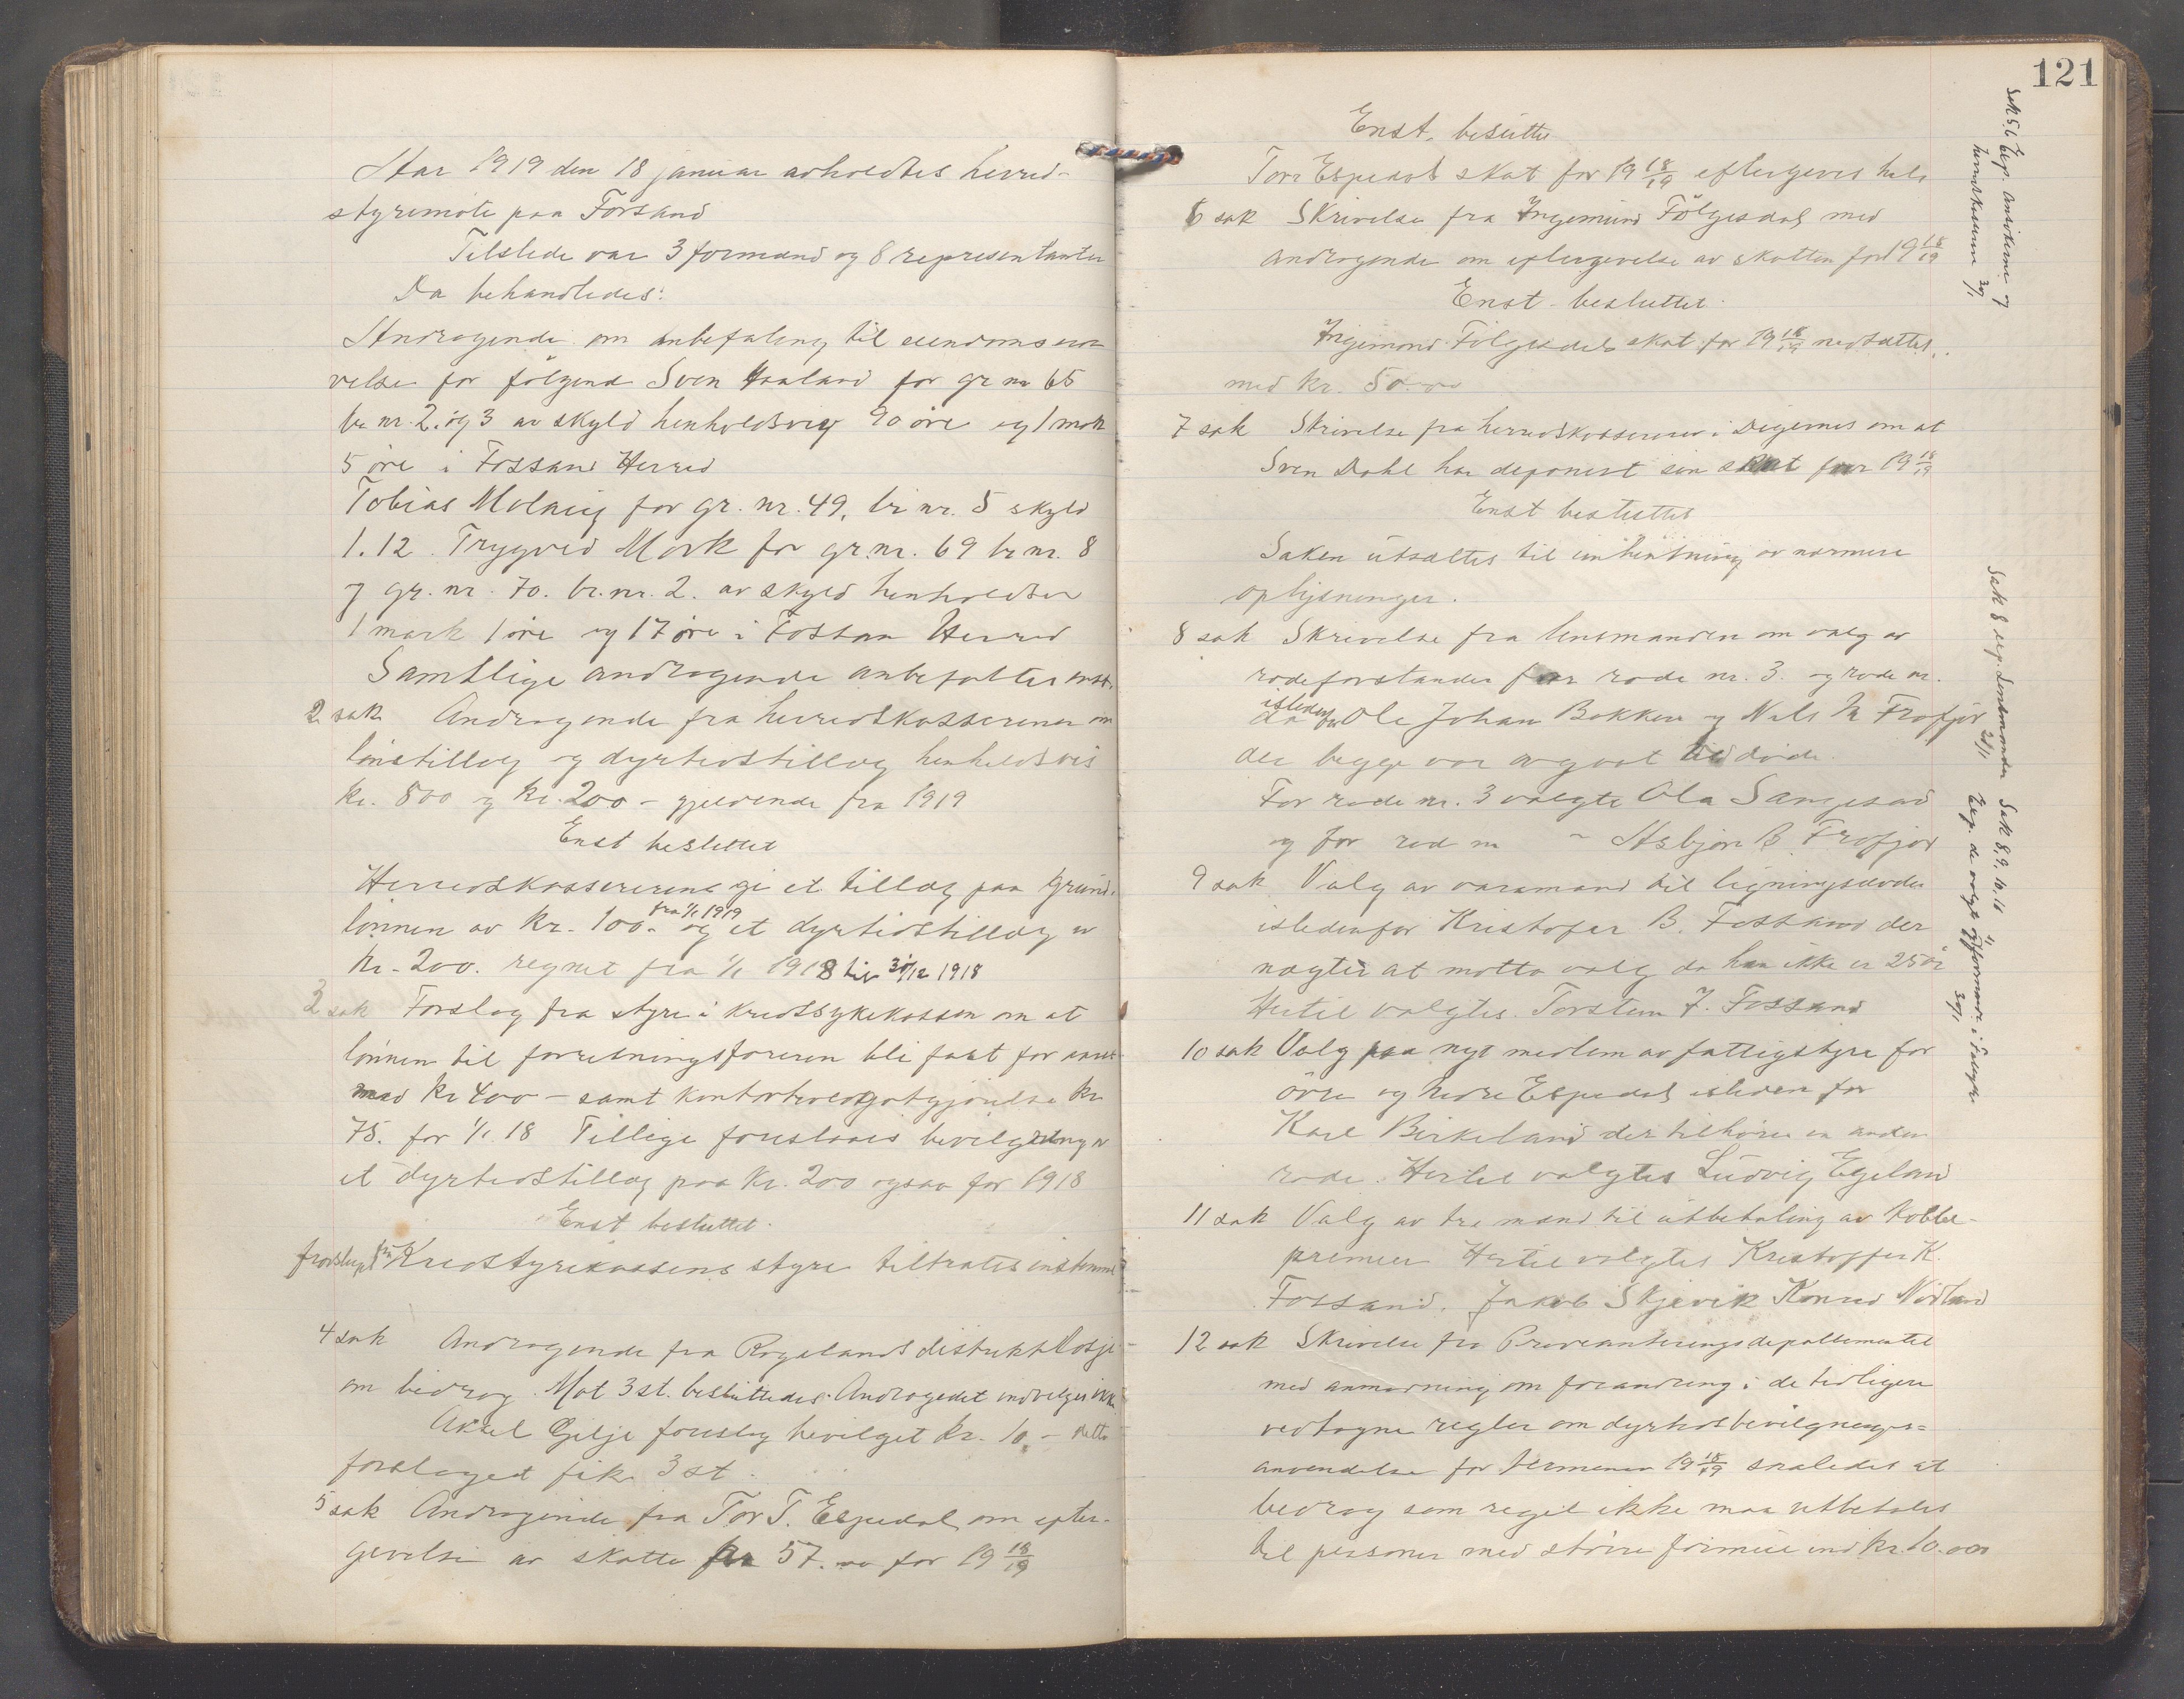 Aar 1919 den 18 januar avholdtes herred-
styremöte paa Forsand
Tilstede var 3 formænd og 8 representanter
Da behandledes:
Andragende om anbefaling til eiendomserver-
velse for følgende Sven Haaland for gr nr 65
br nr. 2. og 3 av skyld henholdsvis 90 öre og 1 mark
5 öre i Fossand Herred
Tobias Molaug for gr. nr. 49, br nr. 5 skyld
1.12. Trygved Mork for gr. nr. 69 br nr. 8
og gr. nr. 70. br. nr. 2. av skyld henholdsvis
1 mark 1 öre og 17 öre i Fossan Herred
Samtlige andragende anbefaltes enst.
2 sak Andragende fra herredskassereren om
lönstillæg og dyrtidstillæg henholdsvis
kr. 800 og kr. 200 - gjeldende fra 1919
Enst besluttet
Herredskassereren gis et tillæg paa grund-
lönnen av kr. 100.- fra 1/1 1919 og et dyrtidstillæg av
kr. 200. regnet fra 1/1 1918 til 31/12 1918
3 sak Forslag fra styre i kredssykekassen om at
lönnen til forretningsföreren bli fast for aaret
med kr 400 - samt kontorholdsgotgjörelse kr
75. for 1/1 18 Tillige foreslaaes bevilgning av
et dyrtidstillæg paa kr. 200 ogsaa for 1918
Enst besluttet.
forslaget fra Kredssykekassens styre tiltrædes enstemmig
4 sak Andragende fra Rogalands distriktslosje
om bidrag. Mot 3 st. besluttedes: Andragedet indvilges ikke
Aksel Gilje foreslog bevilget kr. 10.- Dette
forslaget fik 3 st.
5 sak Andragende fra Tor T. Espedal om efter-
gevelse av skatte kr 57.00 for 19 18/19
121
Enst. besluttes
Tore Espedals skat for 19 18/19 eftergives hele
6 sak Skrivelse fra Ingemund Fölgesdal med
andragende om eftergevelse av skatten for 19 18/19
Enst. besluttet.
Ingimond Fölgesdals skat for 19 18/19 nedsættes
med kr. 50.00
7 sak Skrivelse fra herredskassereren i Digernes om at
Sven Dahl har deponert sin skat for 19 18/19
Enst besluttet
Saken utsættes til inhentning av nærmere
oplysninger.
8 sak Skrivelse fra lensmanden om valg av
rodeforstander for rode nr. 3. og rode nr.
istedenfor Ole Johan Bakken og Nils N Frafjor
der begge var avgaat ved døde.
For rode nr. 3 valgte Ola Sangesand
og for rod nr " Asbjörn B Frafjord
9 sak Valg av varamand til ligningsraadet
istedenfor Kristofer B. Fossand der
nægter at motta valg da han ikke er 25 aar
Hertil valgtes Torstein J. Fossand
10 sak Valg paa nyt medlem av fattigstyre for
övre og Nedre Espedal isteden for
Karl Birkeland der tilhörer en anden
rode. Hertil valgtes Ludvig Egeland
11 sak Valg av tre mænd til utbetaling av kobbe-
premier Hertil valgtes Kristoffer K.
Fossand. Jakob Skjævik Konrad Nörland
12 sak Skrivelse fra Provianteringsdepartementet
med anmodning om forandring i de tidligere
vedtagne regler om dyrtidsbevilgnings=
anvendelse for terminen 19 18/19 saaledes at
bedrag som regel ikke maa utbetales
til personer med större formue end kr. 10.000
Sak 5. 6 Exp. Ansökerne og
herredskasserer 30/1
Sak 8 exp. Lensmanden 30/1
Sak 8, 9, 10, 11
Exp. de valgte og formand i Fattigstyre 30/1